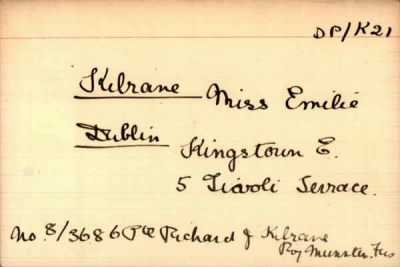 DP/K21
Kilrane Miss Emilie
Dublin Kingstown E.
5 Tivoli Terrace.
No. 8/3686 Pte Richard J Kilrane
Roy Munster Fus